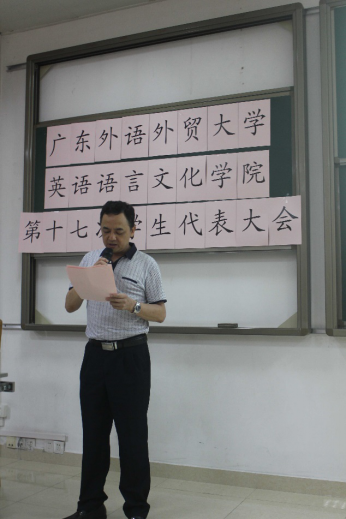 广东外语外贸大学
英语语言文化学院
第十七次学生代表大会